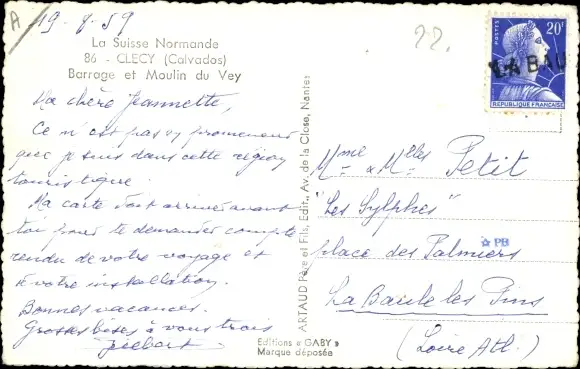 A
19-8-59
22.
La Suisse Normande
86 - CLECY (Calvados)
Barrage et Moulin du Vey
Ma chère Jeannette,
Ce n'est pas en promeneur
que je suis dans cette région
touristique.
Ma carte doit arriver avant
toi pour te demander compte
rendu de votre voyage et
de votre installation.
Bonnes vacances.
Grosses bises à vous trois
Gilbert
Editions « GABY »
Marque déposée
ARTAUD Père et Fils, Edit., Av. de la Close, Nantes
POSTES
20F
LA BAU
REPUBLIQUE FRANÇAISE
Mme & Melles Petit
"Les Sylphes"
place des Palmiers
PB
La Baule les Pins
(Loire Atl.)